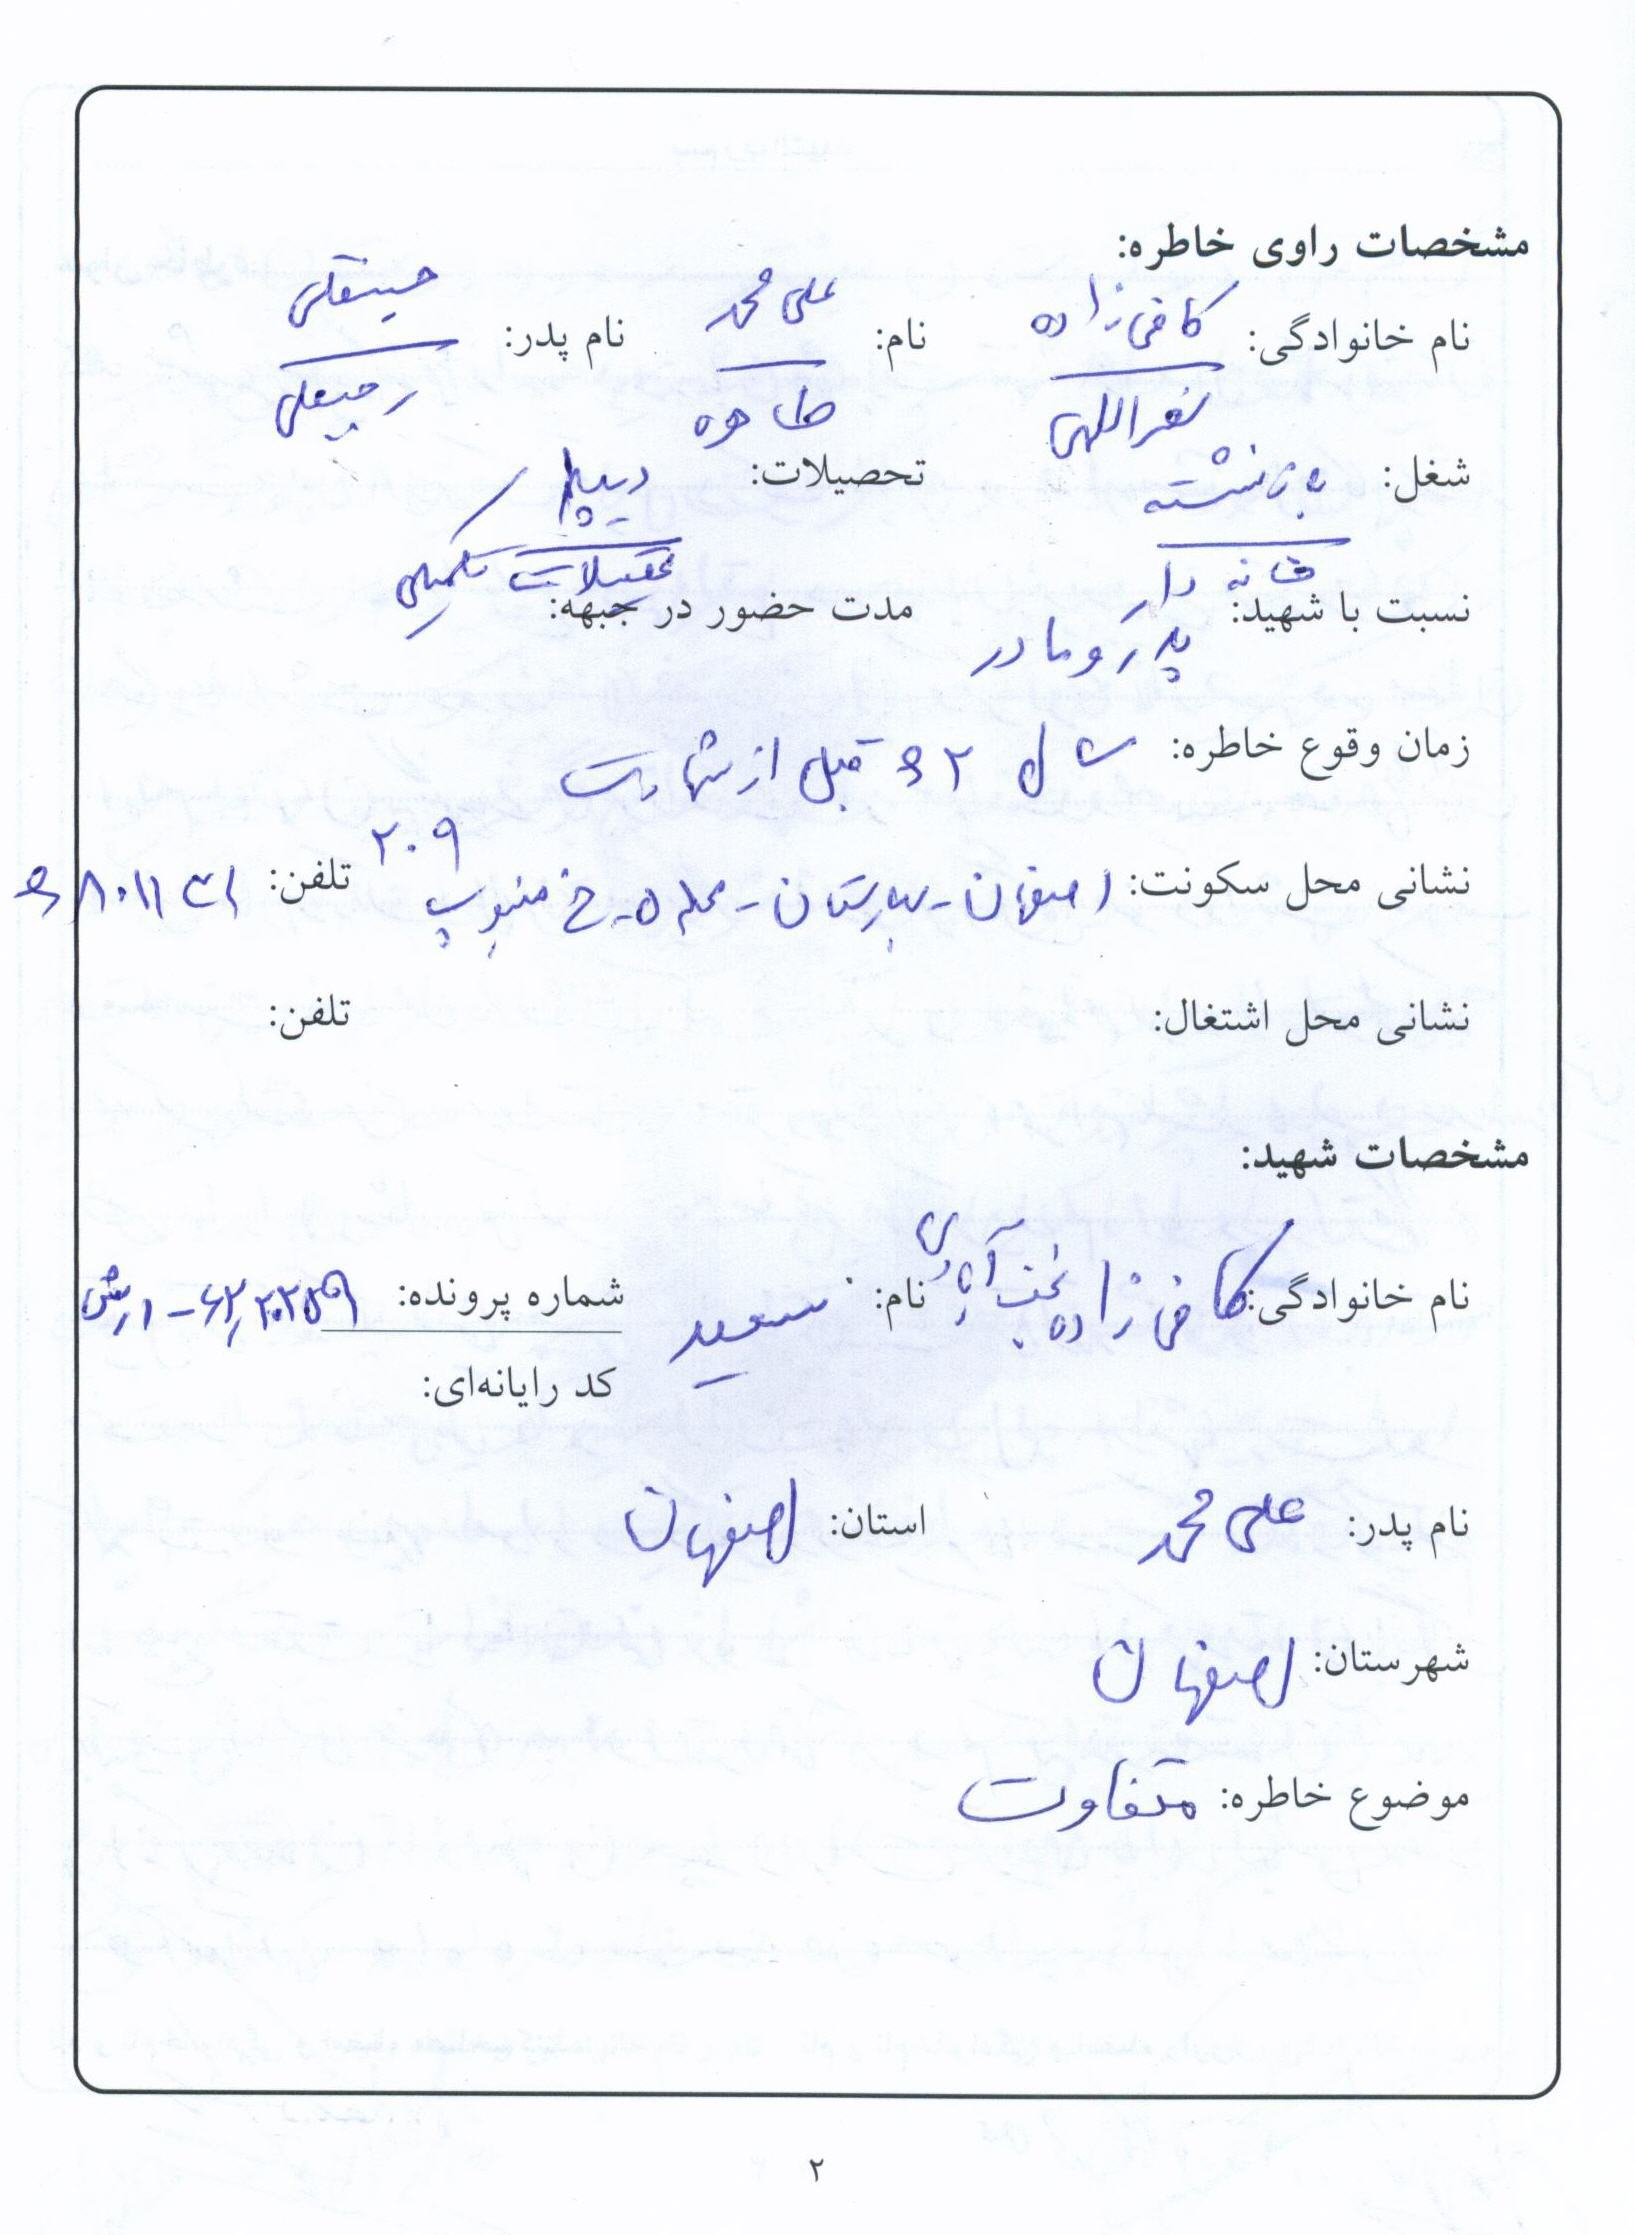 مشخصات راوی خاطره:
نام خانوادگی: کافی زاده نام: علی محمد نام پدر: حسینقلی
نصراللهی طاهره رجبعلی
شغل: بازنشسته تحصیلات: دیپلم
خانه دار تحصیلات تکمیلی
نسبت با شهید: پدر و مادر مدت حضور در جبهه:
زمان وقوع خاطره: سال ۶۲ قبل از شهادت
نشانی محل سکونت: اصفهان - بهارستان - محله ۵ - خ ۲۰۹ تلفن:
نشانی محل اشتغال: تلفن:
مشخصات شهید:
نام خانوادگی: کافی زاده نجف آبادی نام: سعید شماره پرونده:
کد رایانه‌ای:
نام پدر: علی محمد استان: اصفهان
شهرستان: اصفهان
موضوع خاطره: متفاوت
۲